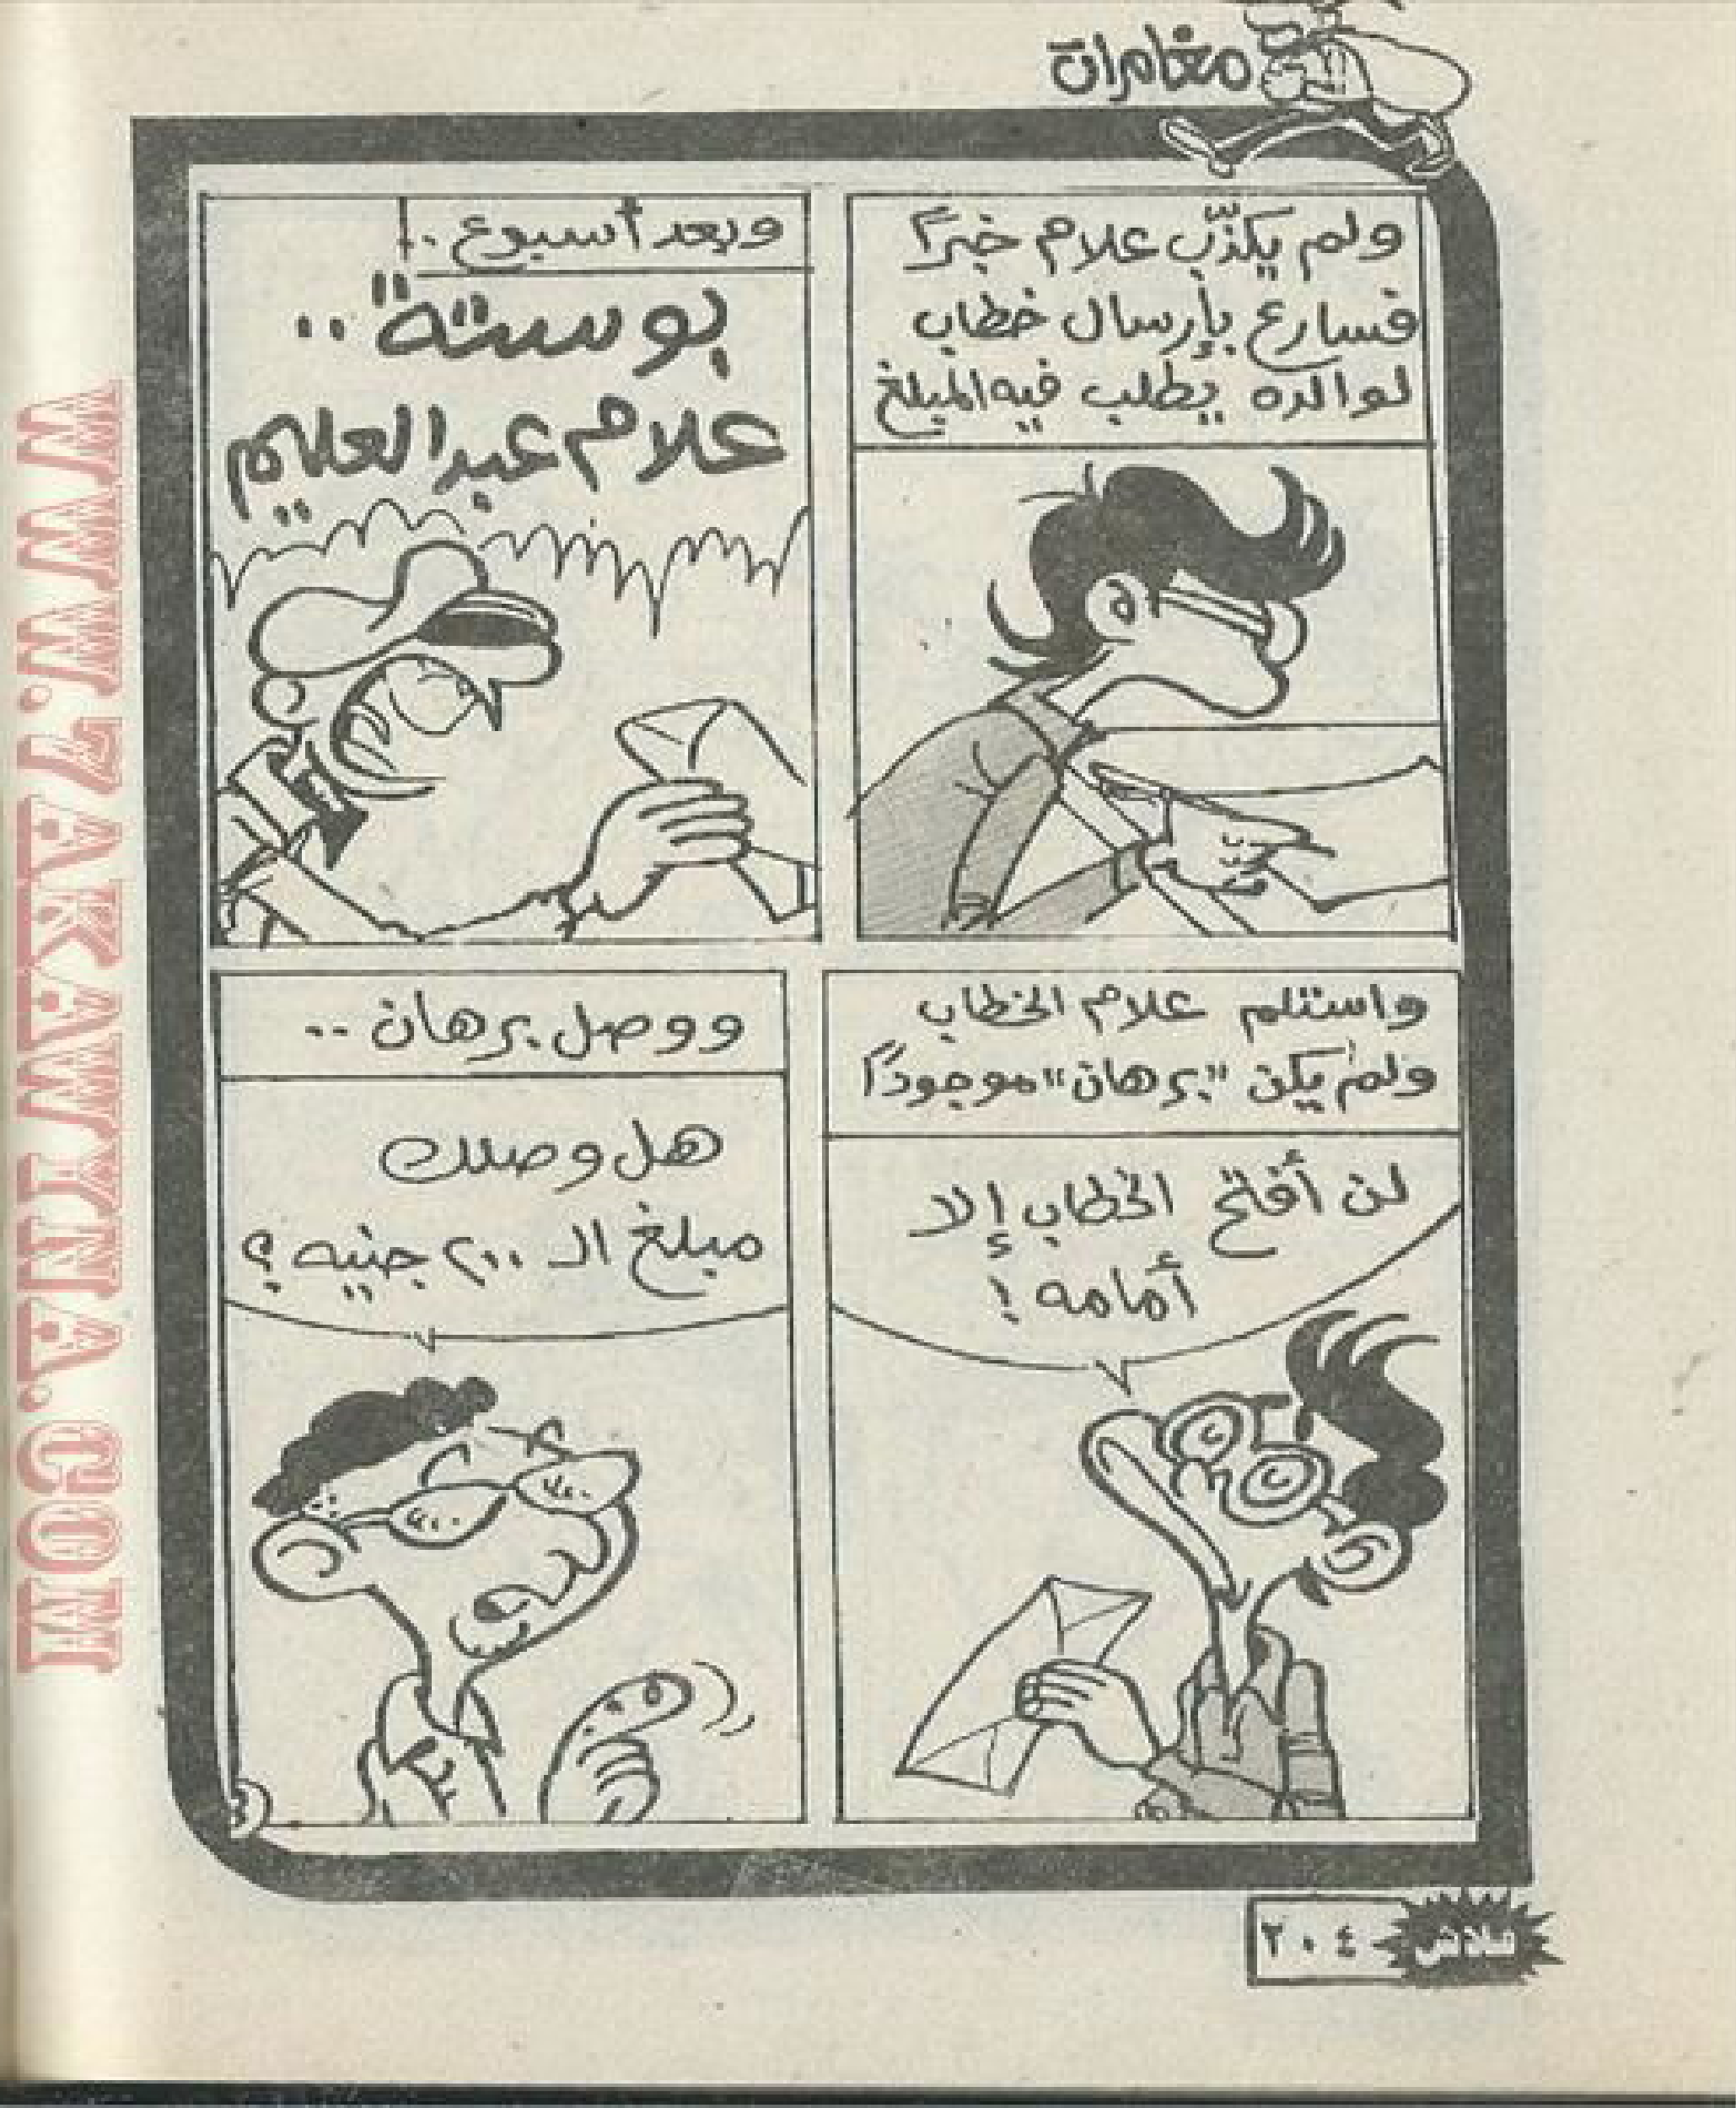 مغامرات
ولم يكذّب علام خبرًا
فسارع بإرسال خطاب
لوالده يطلب فيه المبلغ
وبعد أسبوع..
بوستة..
علام عبد العليم
واستلم علام الخطاب
ولم يكن "برهان" موجودًا
لن أفتح الخطاب إلا
أمامه!
ووصل برهان..
هل وصلك
مبلغ الـ ٢٠٠ جنيه؟
فلاش
٢٠٤
WWW.7AKAWTNA.COM